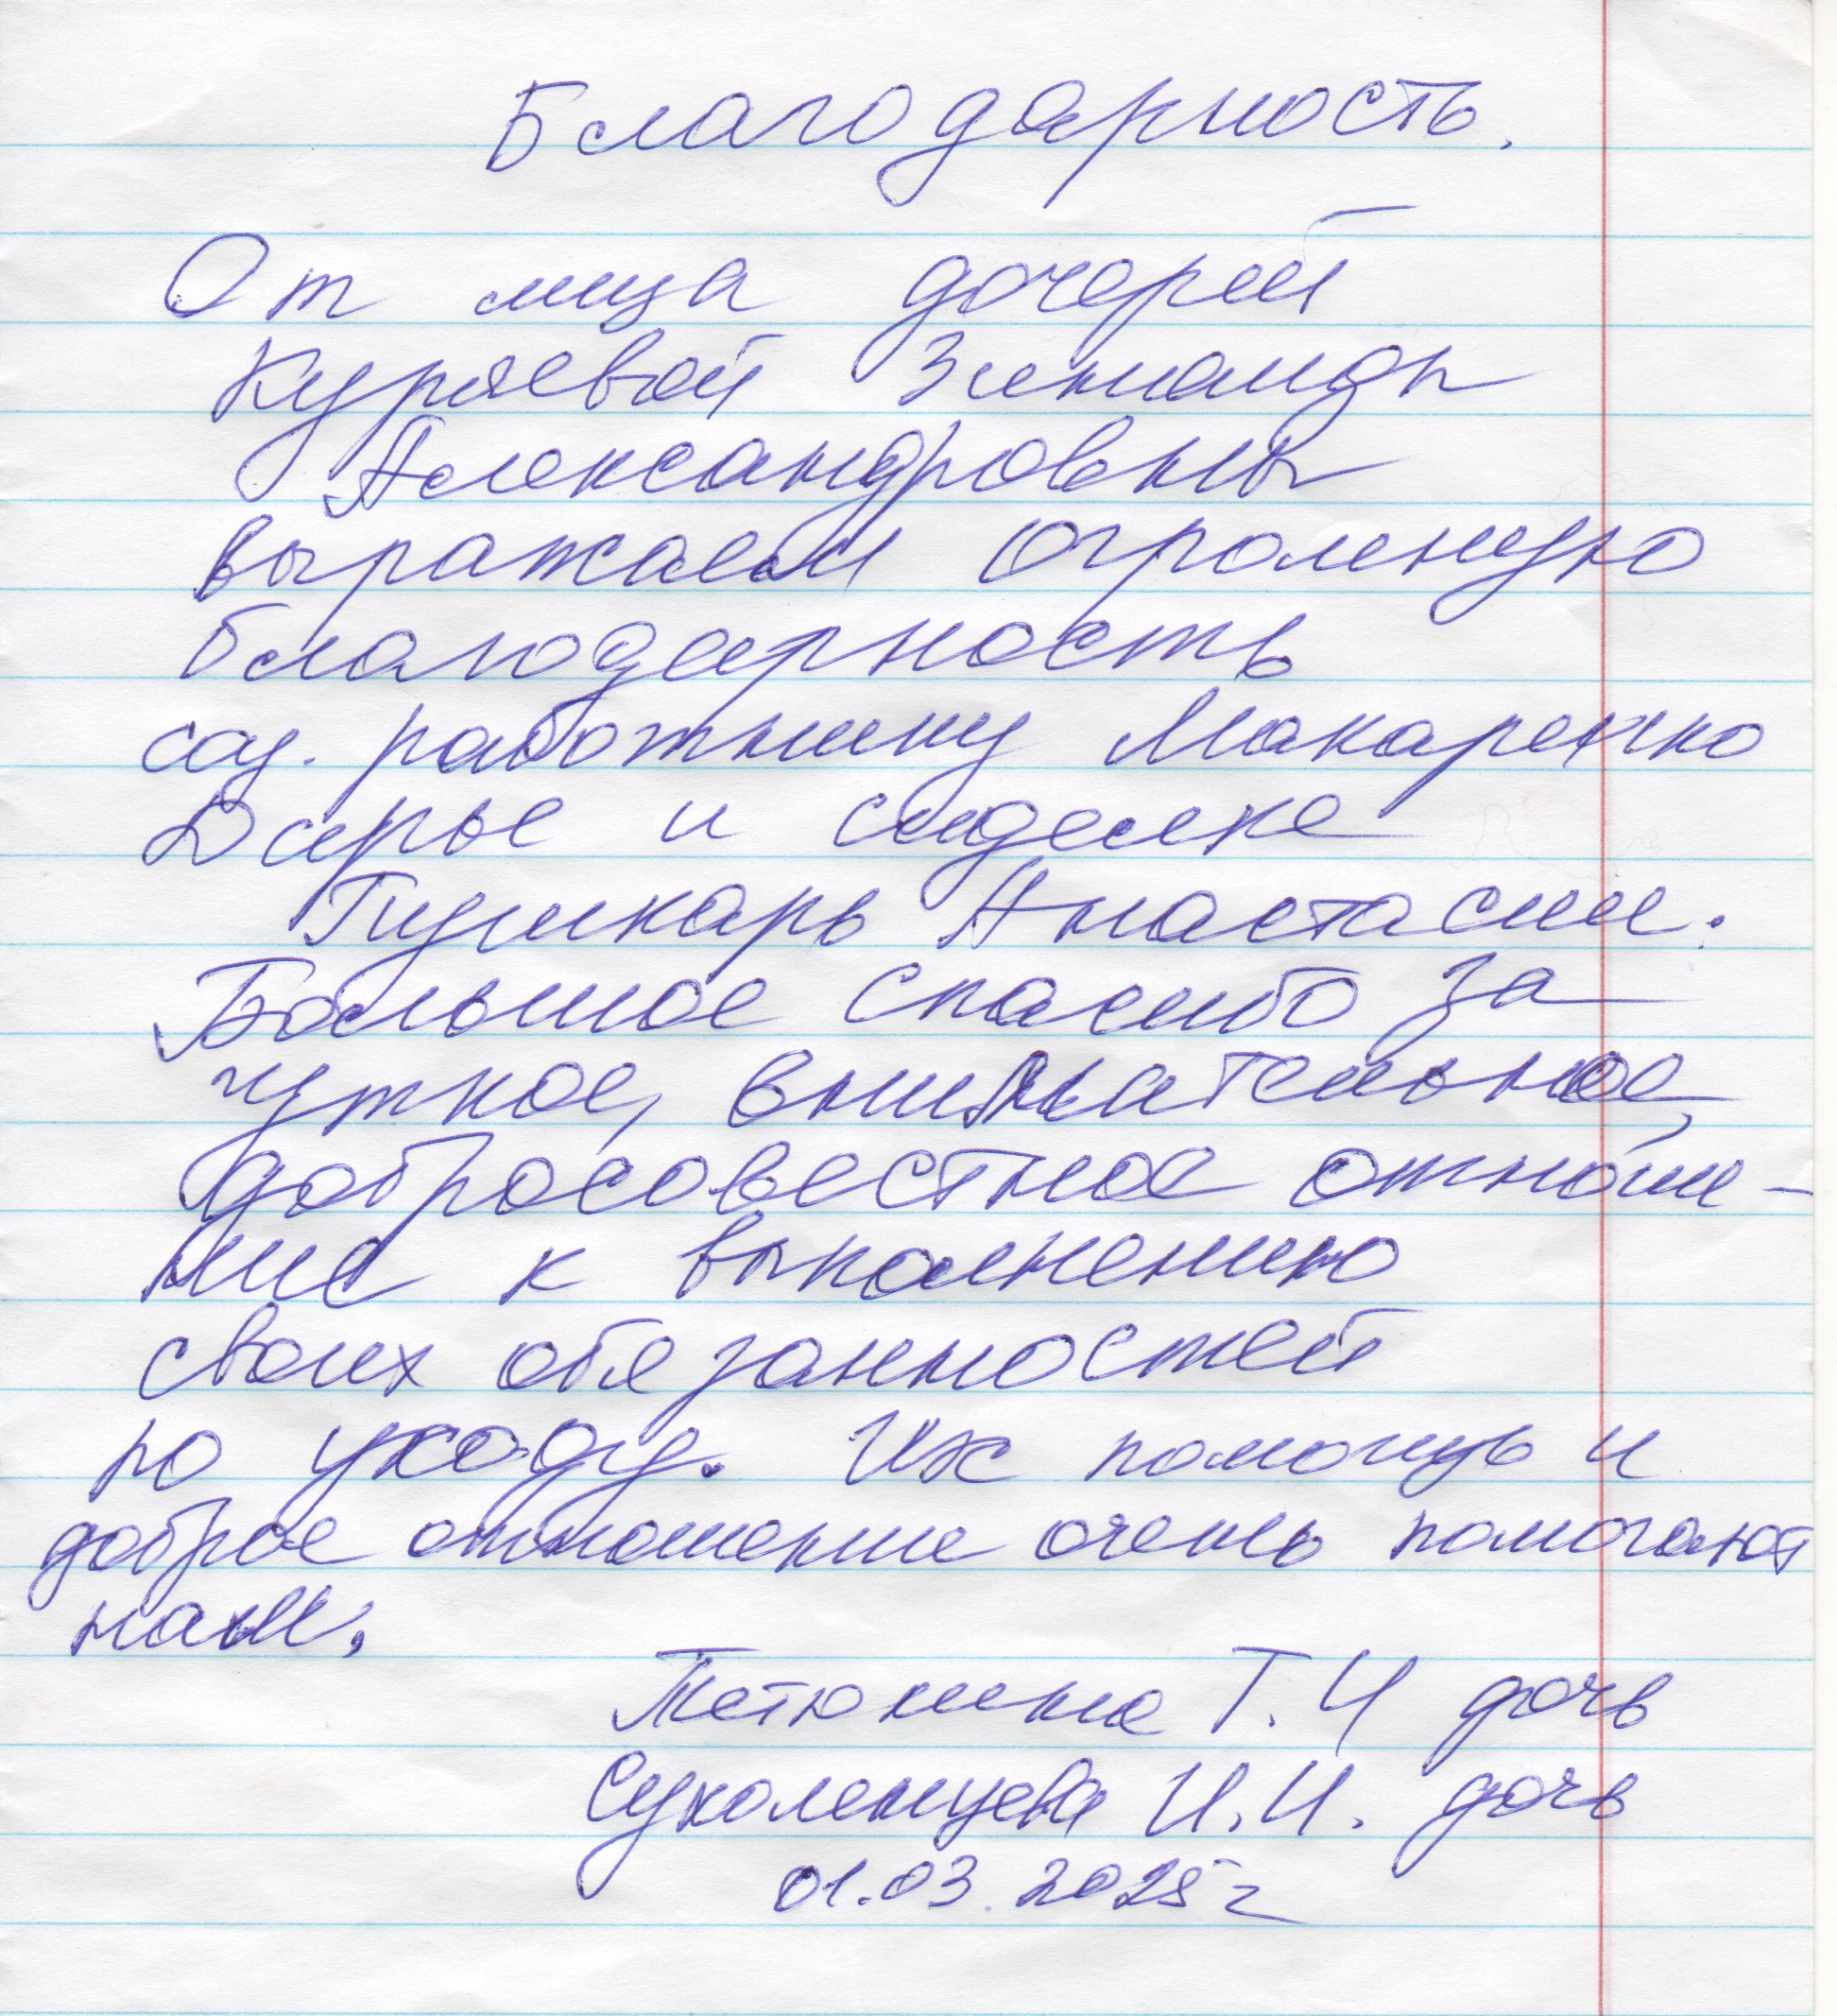 Благодарность.
От лица дочерей
Куряевой Зинаиды
Александровны
выражаем огромную
благодарность
соц. работнику Макаренко
Дарье и сиделке
Пушкарь Анастасии.
Большое спасибо за
чуткое, внимательное,
добросовестное отноше-
ние к выполнению
своих обязанностей
по уходу. Их помощь и
доброе отношение очень помогают
нам.
Т. И дочь
И. И. дочь
01.03.2025г